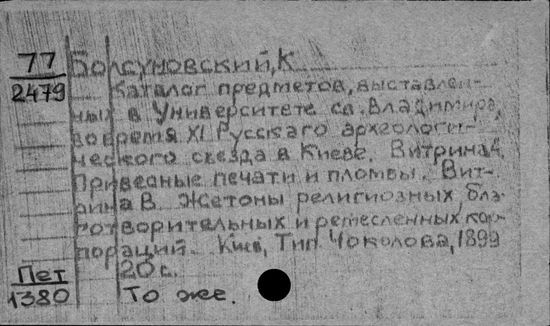 77 Болсуновский, К
2479 Каталог предметов, выставлен-
ных в Университете св. Владимира,
во время XI Русскаго археологи-
ческого съезда в Киеве. Витрина А.
Привесные печати и пломбы. Вит-
рина В. Жетоны религиозных, бла-
готворительных и ремесленных кор-
пораций. Киев, Тип. Чоколова, 1899
Пет 20 с.
1380 То же.